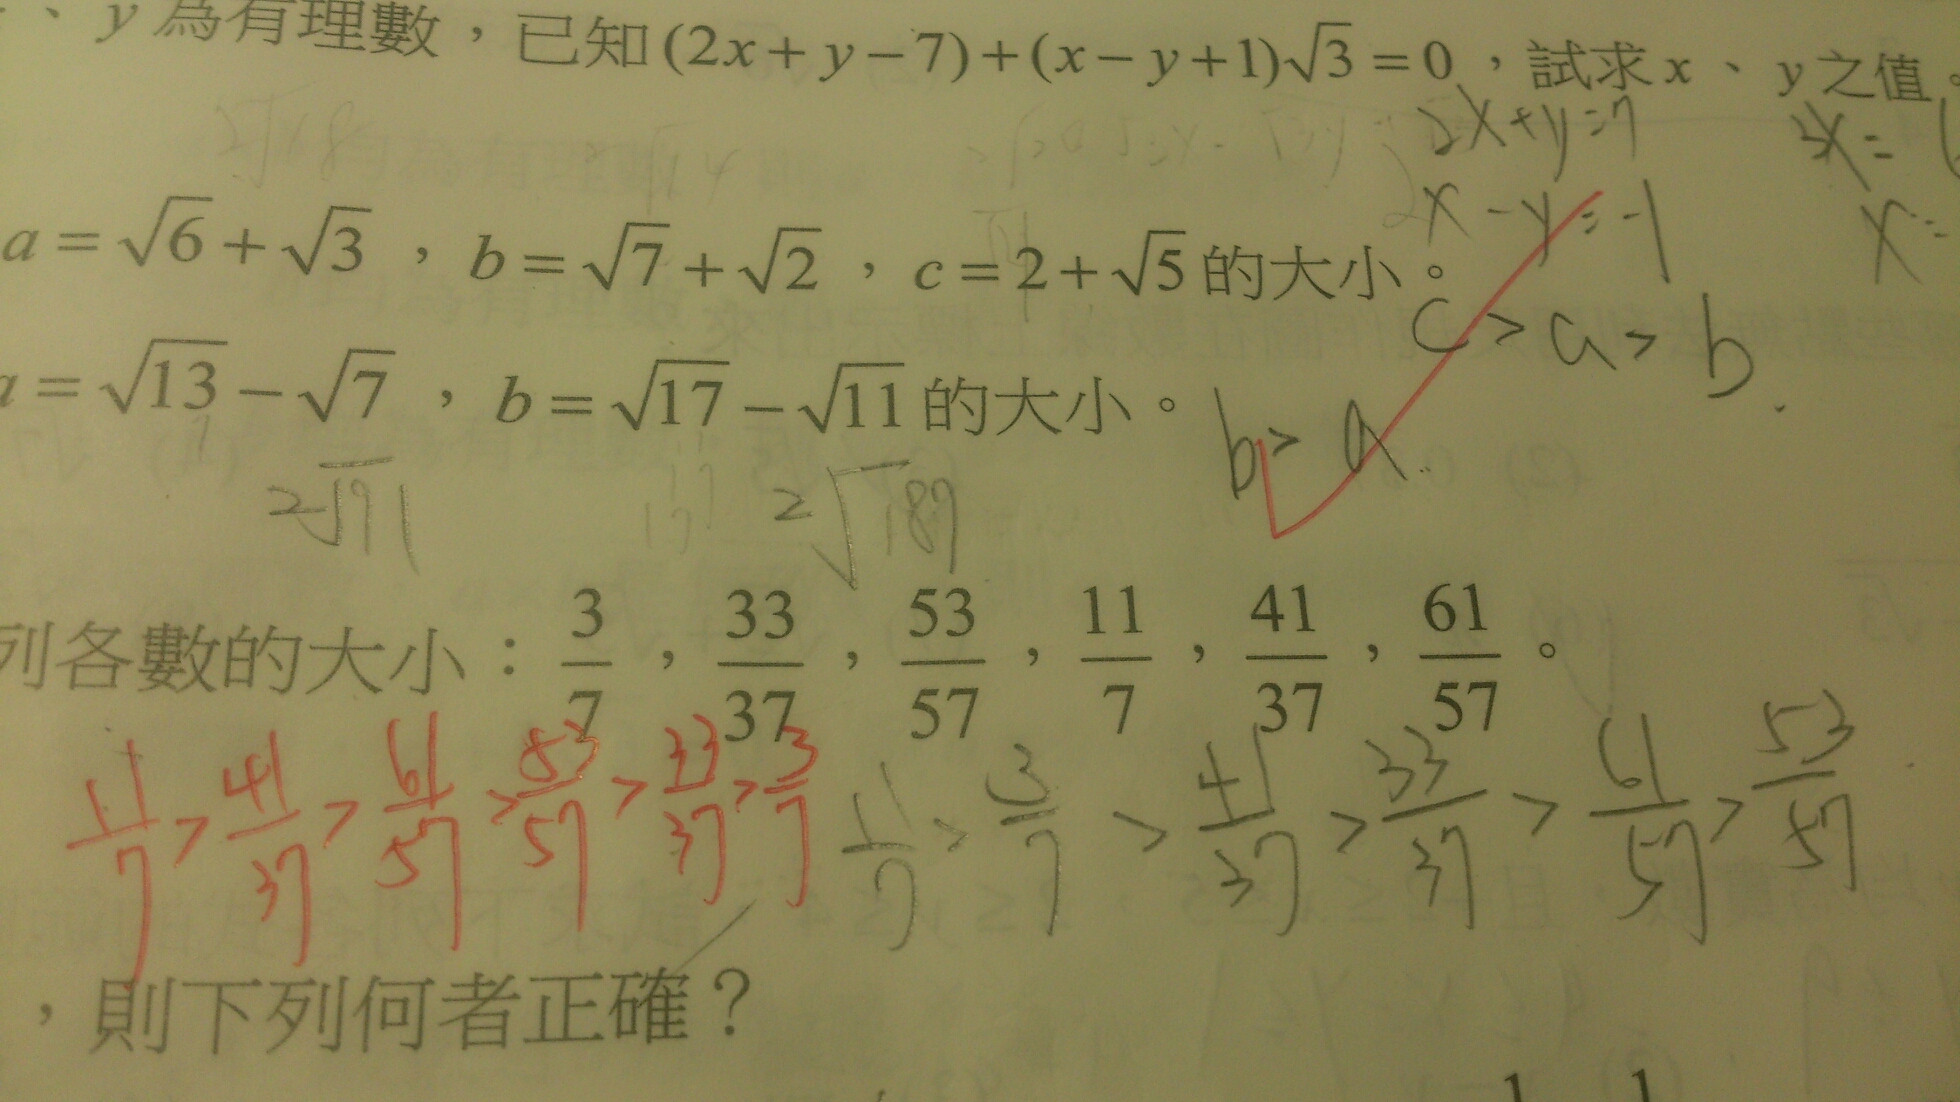 、y為有理數，已知(2x+y−7)+(x−y+1)√3=0，試求x、y之值。
2x+y=7
x-y=-1
x=
a=√6+√3，b=√7+√2，c=2+√5的大小。
c>a>b
a=√13−√7，b=√17−√11的大小。
b>a
2√91 2√187
列各數的大小：3/7，33/37，53/57，11/7，41/37，61/57。
11/7>41/37>61/57>53/57>33/37>3/7
11/7>3/7>41/37>33/37>61/57>53/57
，則下列何者正確？
1 1